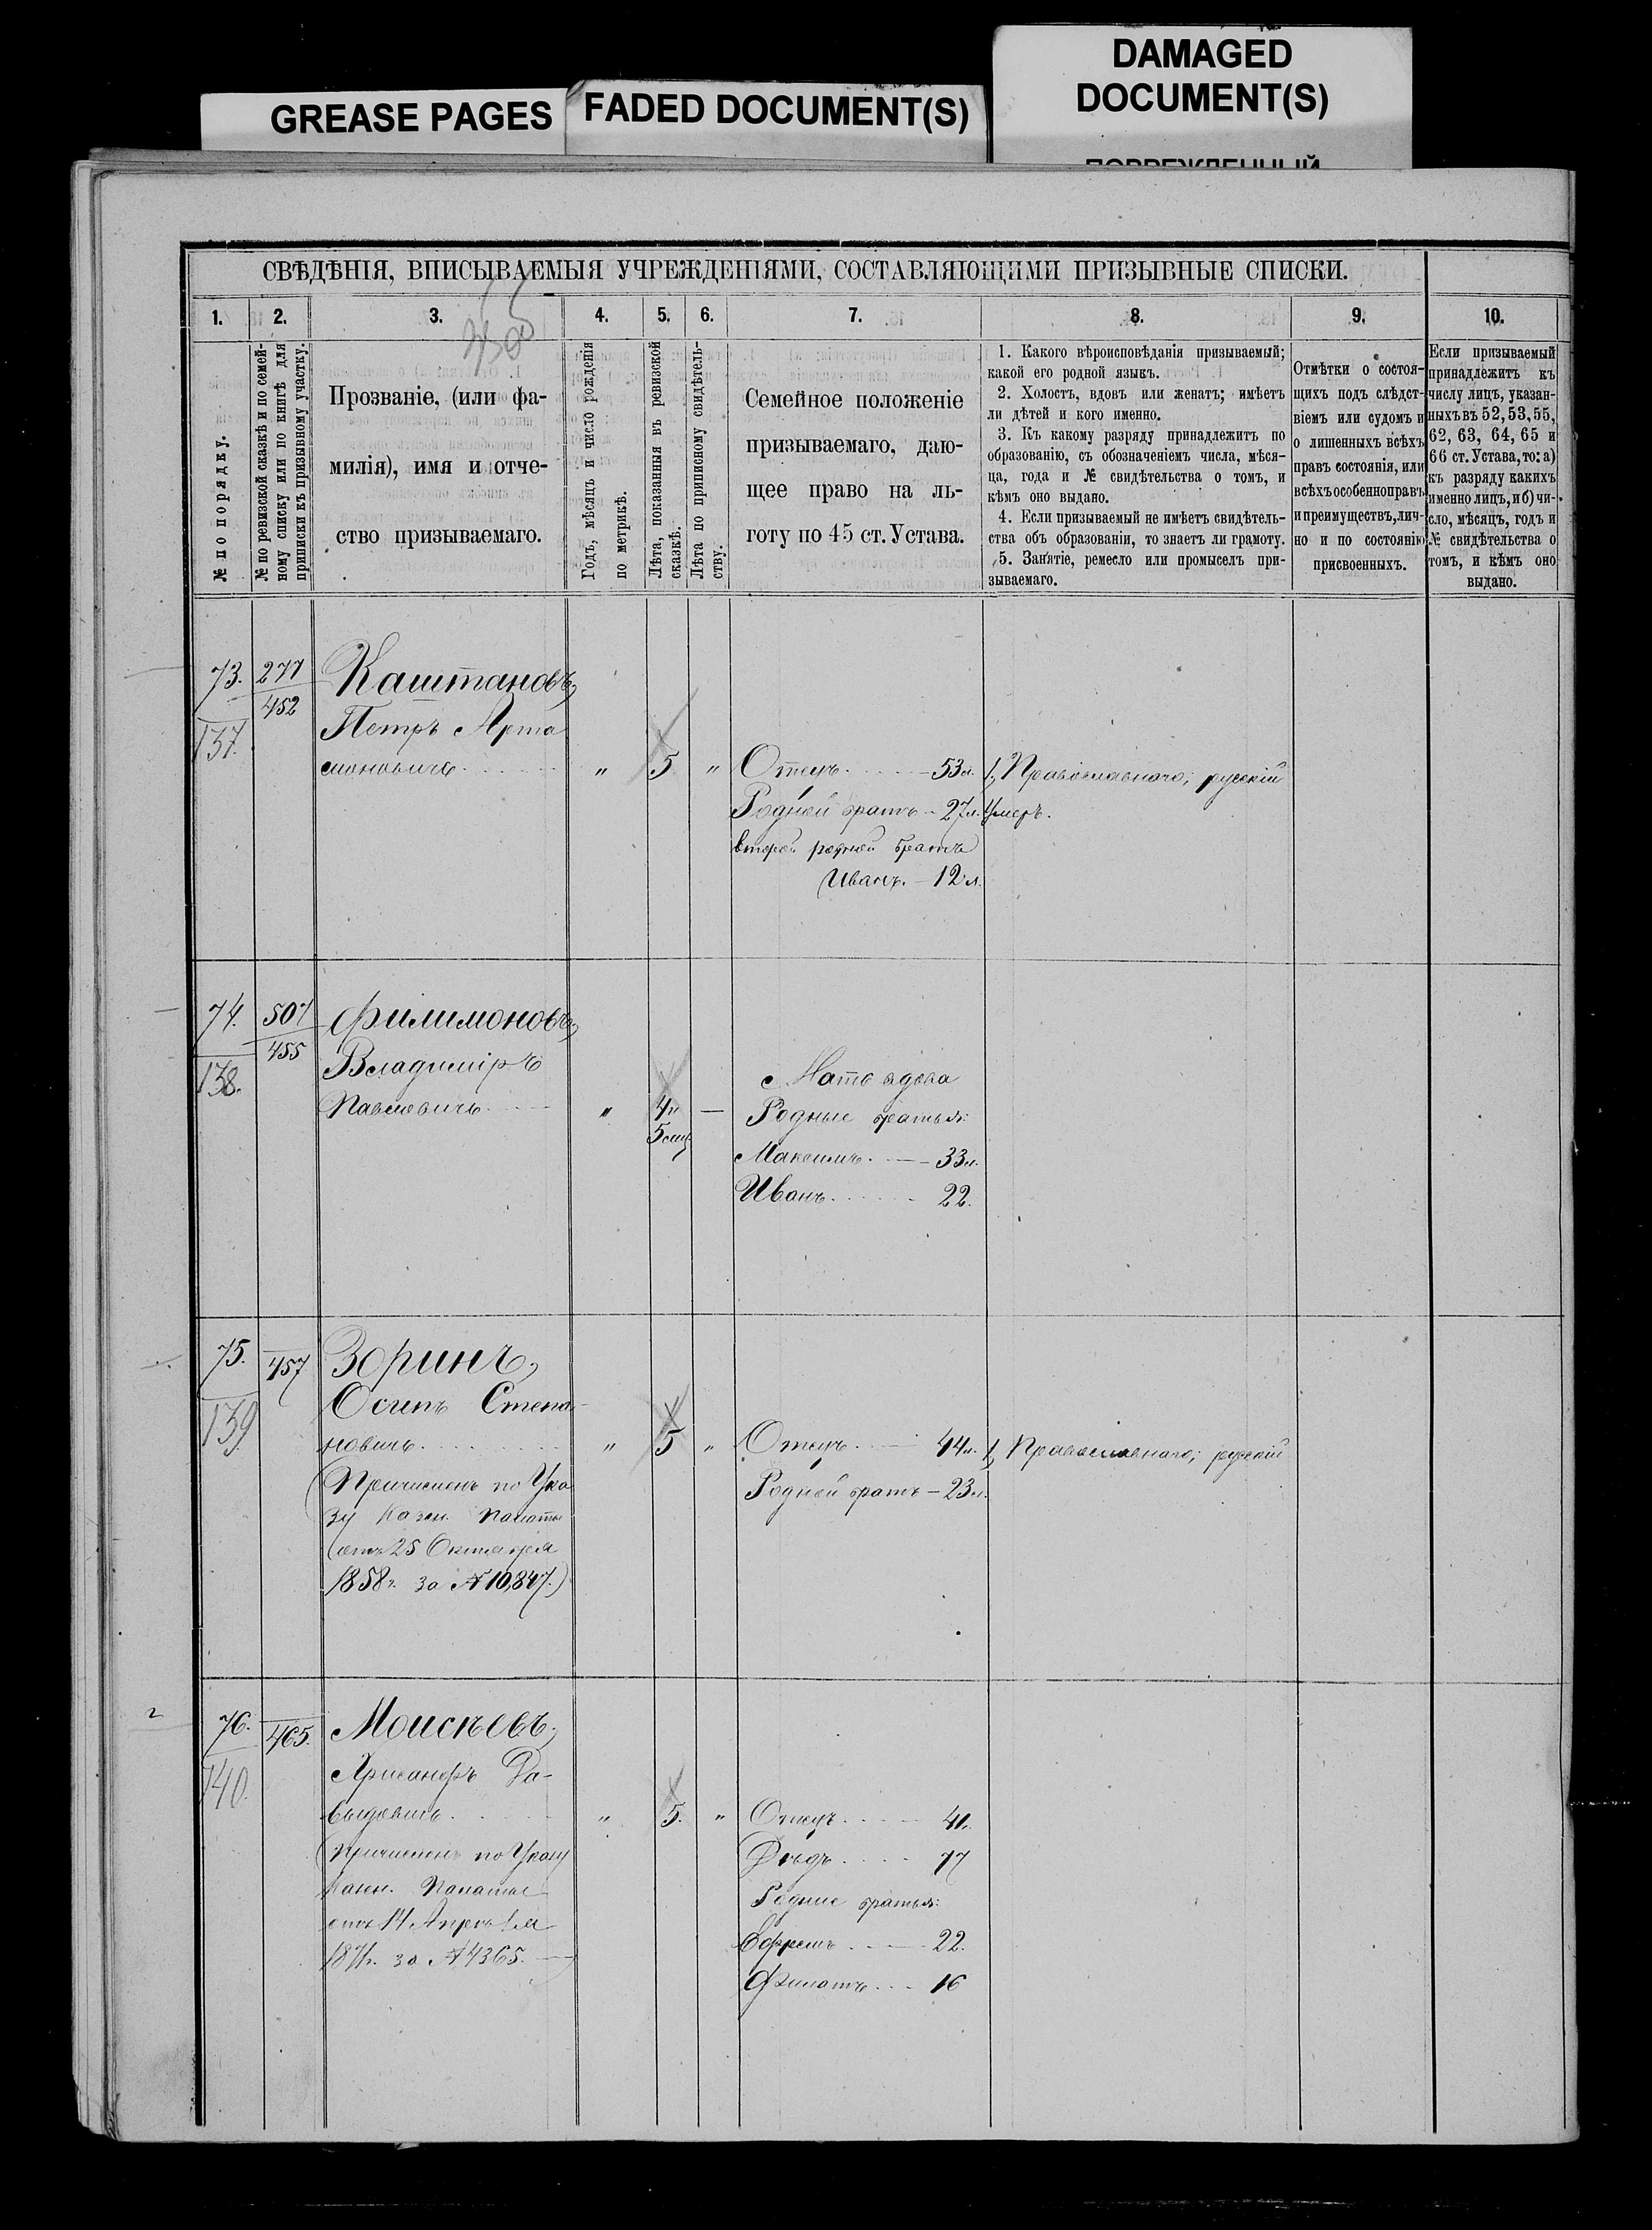 GREASE PAGES
FADED DOCUMENT(S)
DAMAGED
DOCUMENT(S)
ПОВРЕЖДЕННЫЙ
СВѢДѢНІЯ, ВПИСЫВАЕМЫЯ УЧРЕЖДЕНІЯМИ, СОСТАВЛЯЮЩИМИ ПРИЗЫВНЫЕ СПИСКИ.
1. 2. 3. 4. 5. 6. 7. 8. 9. 10.
№ по порядку.
№ по ревизской сказкѣ и по семей-
ному списку или по книгѣ для
приписки къ призывному участку.
Прозваніе, (или фа-
милія), имя и отче-
ство призываемаго.
Годъ, мѣсяцъ и число рожденія
по метрикѣ.
Лѣта, показанныя въ ревизской
сказкѣ.
Лѣта по приписному свидѣтель-
ству.
Семейное положеніе
призываемаго, даю-
щее право на ль-
готу по 45 ст. Устава.
1. Какого вѣроисповѣданія призываемый;
какой его родной языкъ.
2. Холостъ, вдовъ или женатъ; имѣетъ
ли дѣтей и кого именно.
3. Къ какому разряду принадлежитъ по
образованію, съ обозначеніемъ числа, мѣся-
ца, года и № свидѣтельства о томъ, и
кѣмъ оно выдано.
4. Если призываемый не имѣетъ свидѣтель-
ства объ образованіи, то знаетъ ли грамоту.
5. Занятіе, ремесло или промыселъ при-
зываемаго.
Отмѣтки о состоя-
щихъ подъ слѣдст-
віемъ или судомъ и
о лишенныхъ всѣхъ
правъ состоянія, или
всѣхъ особенно правъ
и преимуществъ, лич-
но и по состоянію
присвоенныхъ.
Если призываемый
принадлежитъ къ
числу лицъ, указан-
ныхъ въ 52, 53, 55,
62, 63, 64, 65 и
66 ст. Устава, то: а)
къ разряду какихъ
именно лицъ, и б) чи-
сло, мѣсяцъ, годъ и
№ свидѣтельства о
томъ, и кѣмъ оно
выдано.
73. 277 Каштановъ,
452
137. Петръ Арта
моновичъ " 5 " Отецъ 53 л. 1, Православнаго; русскій
Родной братъ - 27 л. Умеръ.
второй родной братъ
Иванъ. - 12 л.
74. 507 Филимоновъ,
455
138. Владиміръ
Павловичъ " 4 — Мать вдова
Родные братья:
Максимъ. — 33 л.
Иванъ 22.
75. 457 Зоринъ,
139 Осипъ Степа-
новичъ " 5 " Отецъ 44 л. 1, Православнаго; русскій
Родной братъ — 23 л.
(Причисленъ по Ука
зу Казен. Палаты
отъ 25 Октября
1858 г. за № 10,847.)
76. 465. Моисѣевъ,
140. Хрисанфъ Да-
выдовичъ " 5. " Отецъ 41.
Дѣдъ 77
(Причисленъ по Указу
Казен. Палаты
отъ 14 Апрѣля
1871 г. за № 4365.
Родные братья:
Ефремъ — 22.
Филатъ 16